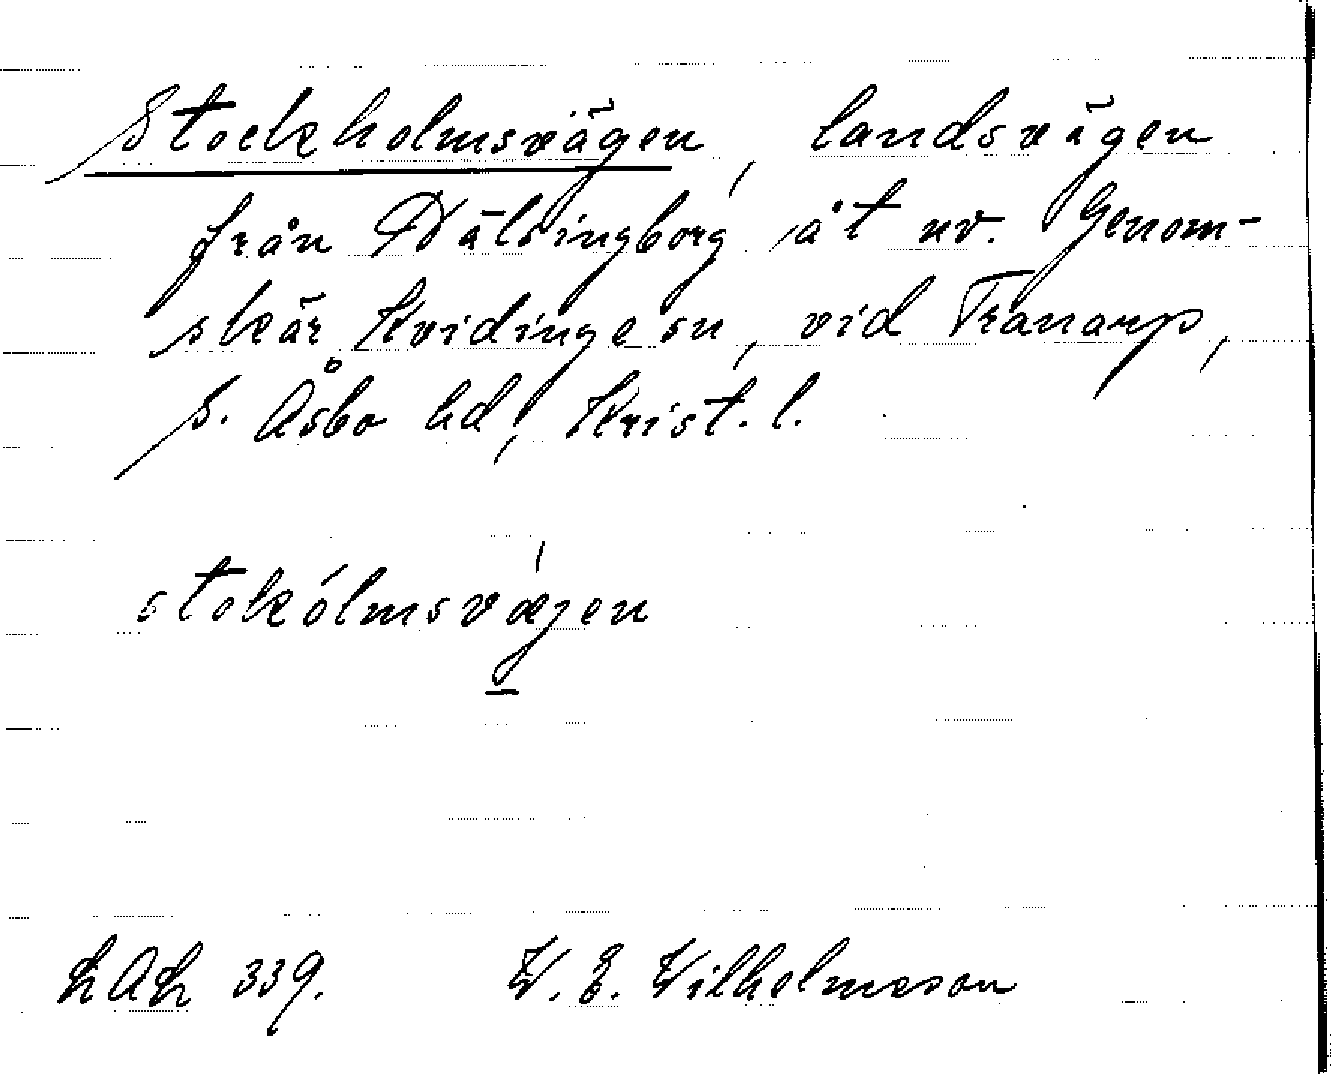 Stockholmsvägen, landsvägen
från Hälsingborg åt nv. Genom-
skär Kvidinge sn, vid Tranarp,
S. Åsbo hd, Krist. l.
stokólmsvægen
LAL 339. W. E. Wilhelmsson